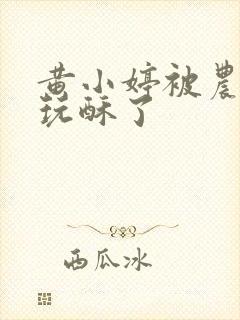 黄小婷被農
玩酥了
西瓜冰